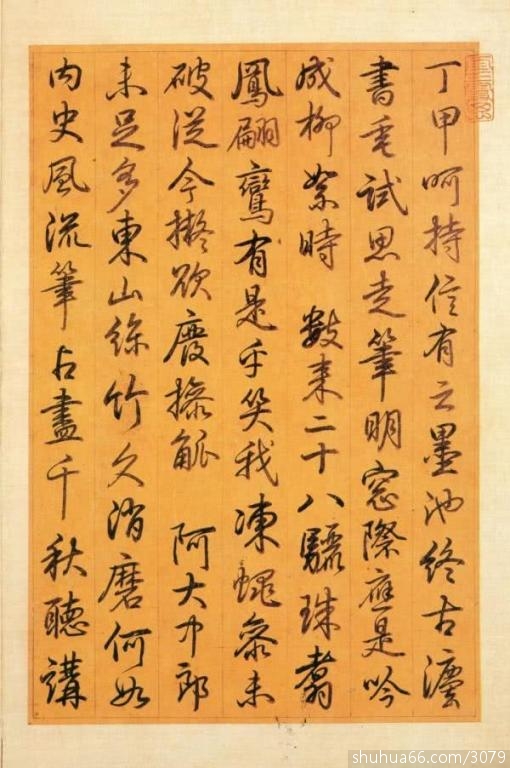 丁甲呵持信有之墨池終古
書垂試思走筆明窓際應是吟
成柳絮時 數來二十八驪珠翥
鳳翩鸞有是乎笑我凍蠅參未
破從今擬欲廢操觚 阿大中郎
未足多東山絲竹久消磨何如
內史風流筆占盡千秋聽講
shuhua66.com/3079